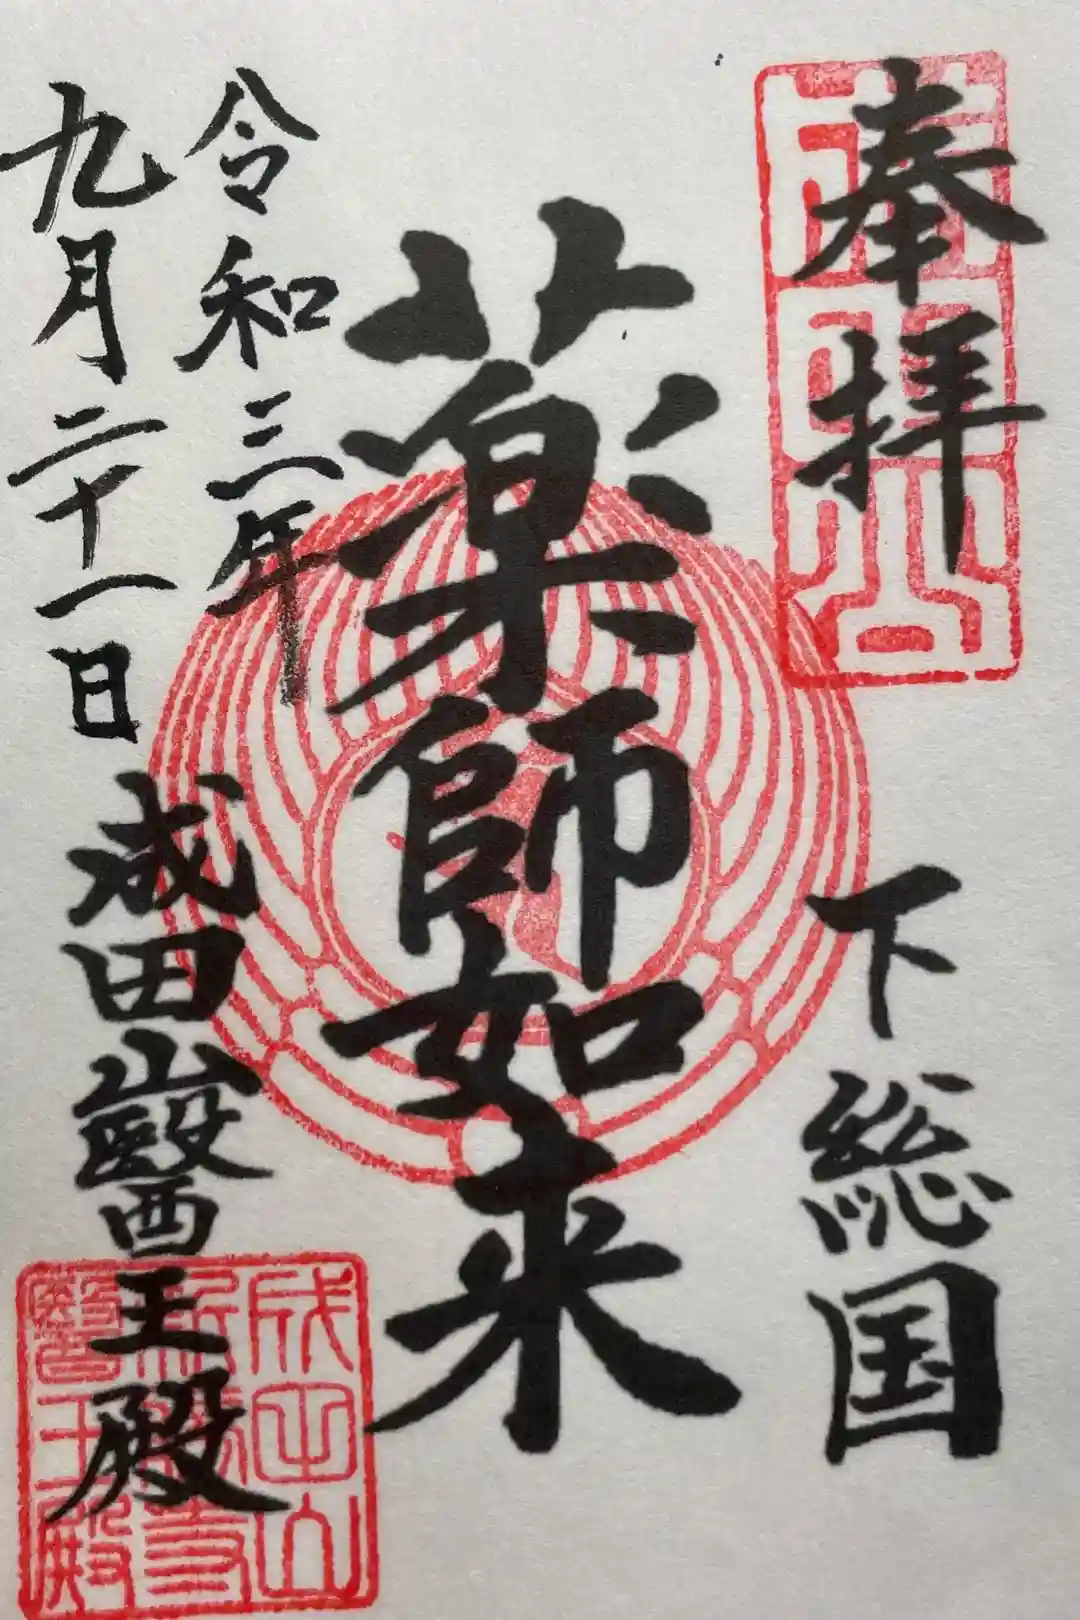 奉拝
下総国
薬師如来
令和三年
九月二十一日
成田山醫王殿
成田山
成田山
新勝寺
醫王殿